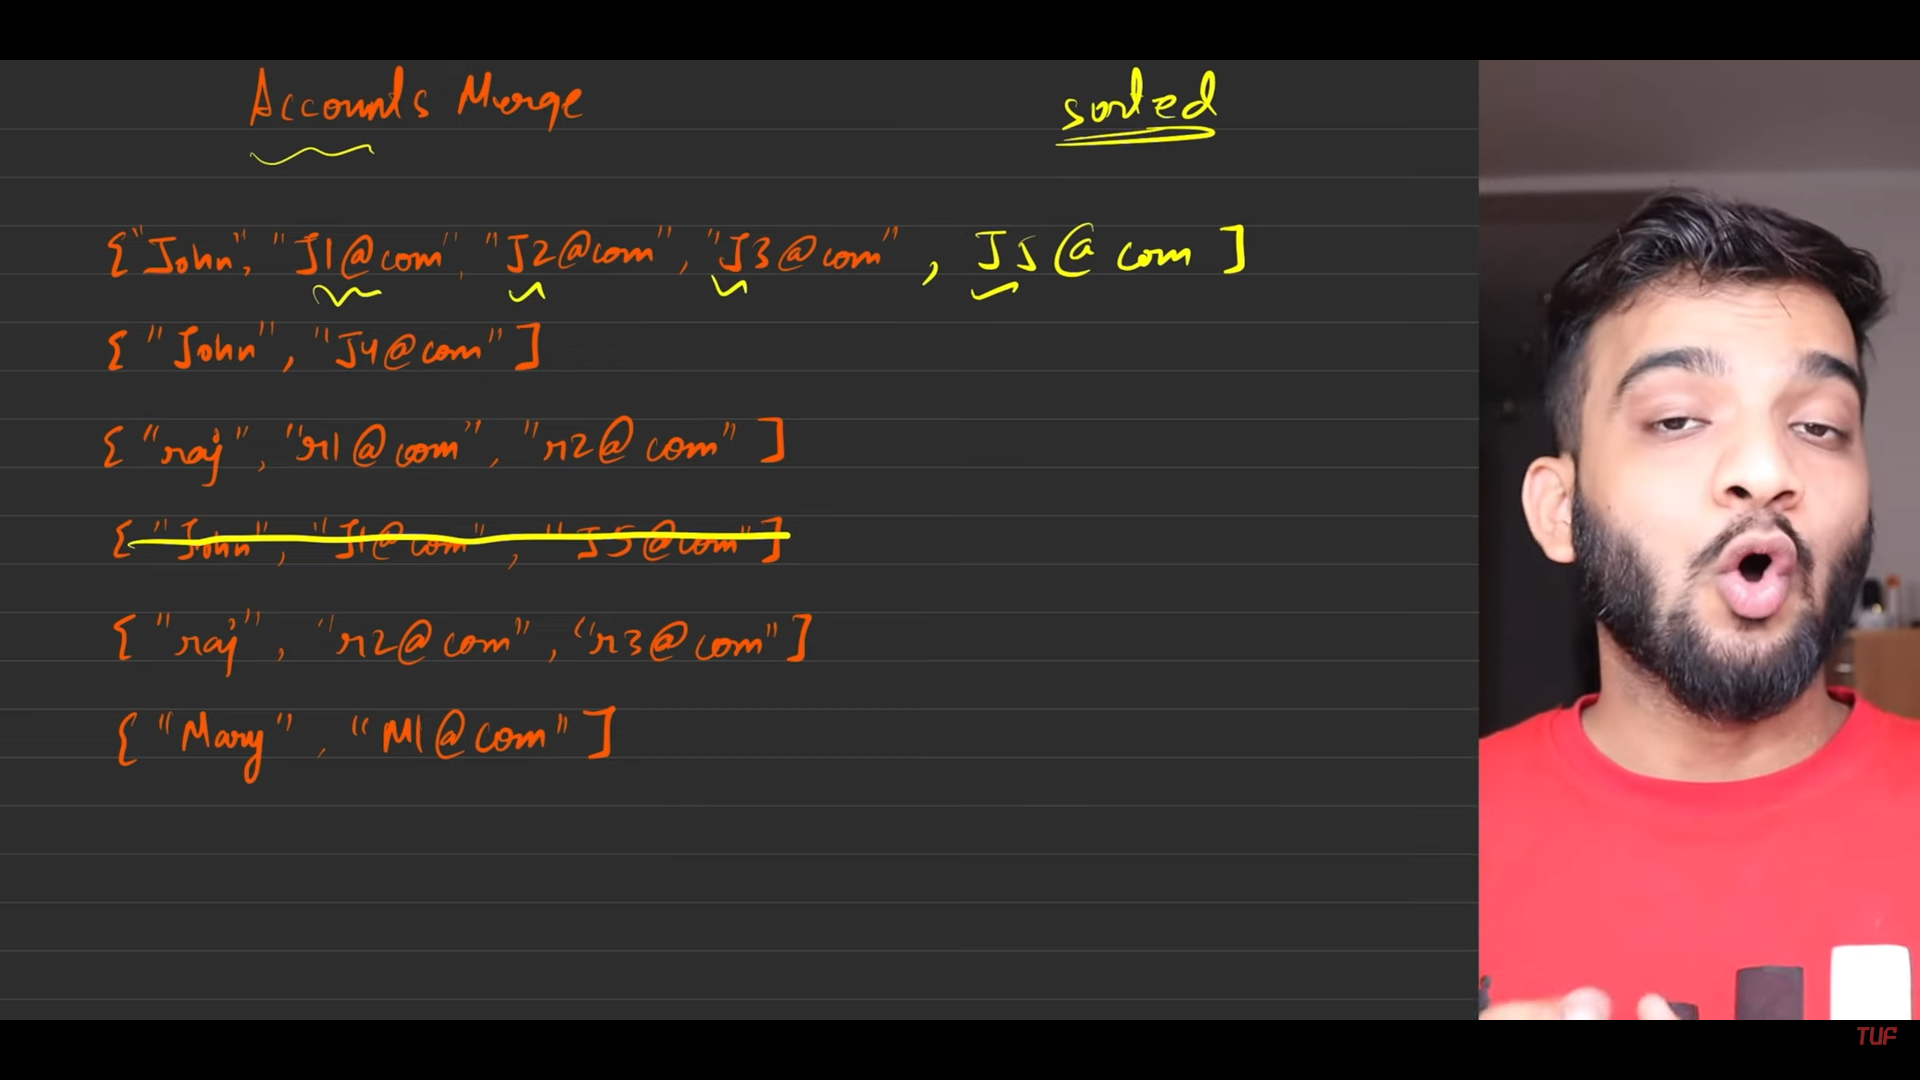 Accounts Merge
sorted
{"John", "J1@com", "J2@com", "J3@com", J5@com]
{"John", "J4@com"]
{"raj", "r1@com", "r2@com"]
{"John", "J1@com", "J5@com"]
{"raj", "r2@com", "r3@com"]
{"Mary", "M1@com"]
TUF